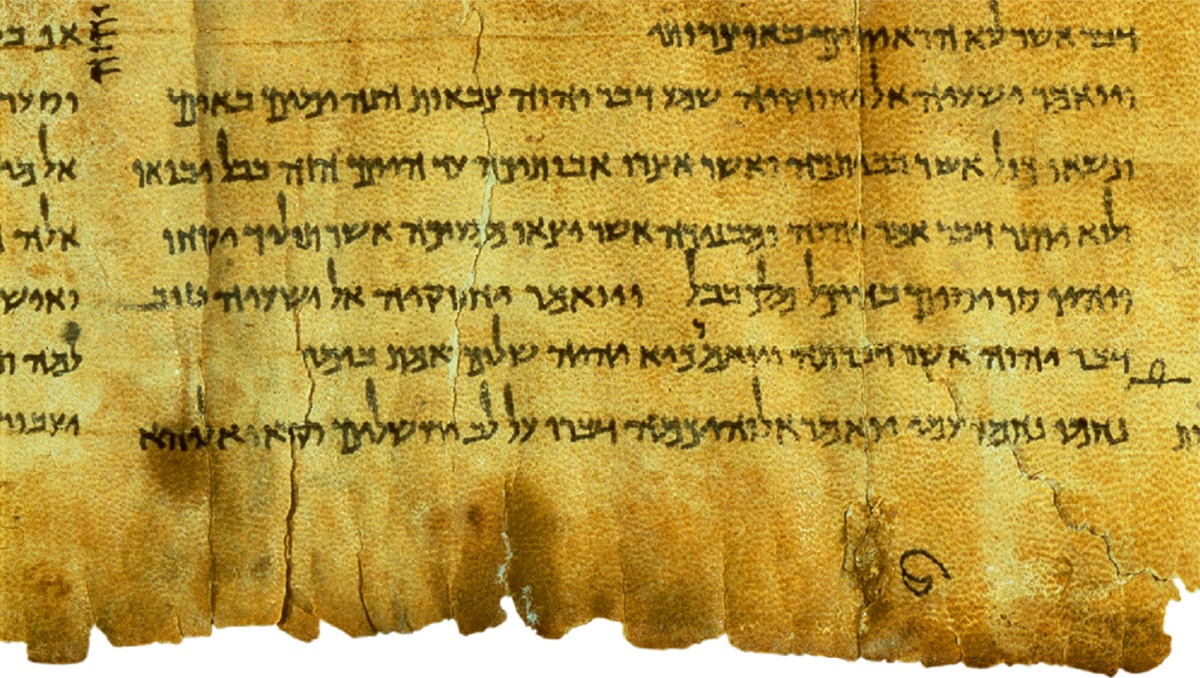 דבר אשר לא הראיתים באוצרותי
ויואמר ישעיה אל יחזקיה שמע דבר יהוה צבאות הנה ימים באים
ונשאו כול אשר בביתכה ואשר אצרו אבותיכה עד היום הזה בבל יביאו
ולוא יותר דבר אמר יהוה ומבניכה אשר יצאו ממעיכה אשר תוליד יקחו
ויהיו סריסים בהיכל מלך בבל ויואמר יחזקיה אל ישעיה טוב
דבר יהוה אשר דברתה ויואמר כיא יהיה שלום ואמת בימי
נחמו נחמו עמי יואמר אלוהיכמה דברו על לב ירושלים וקראו אליהא